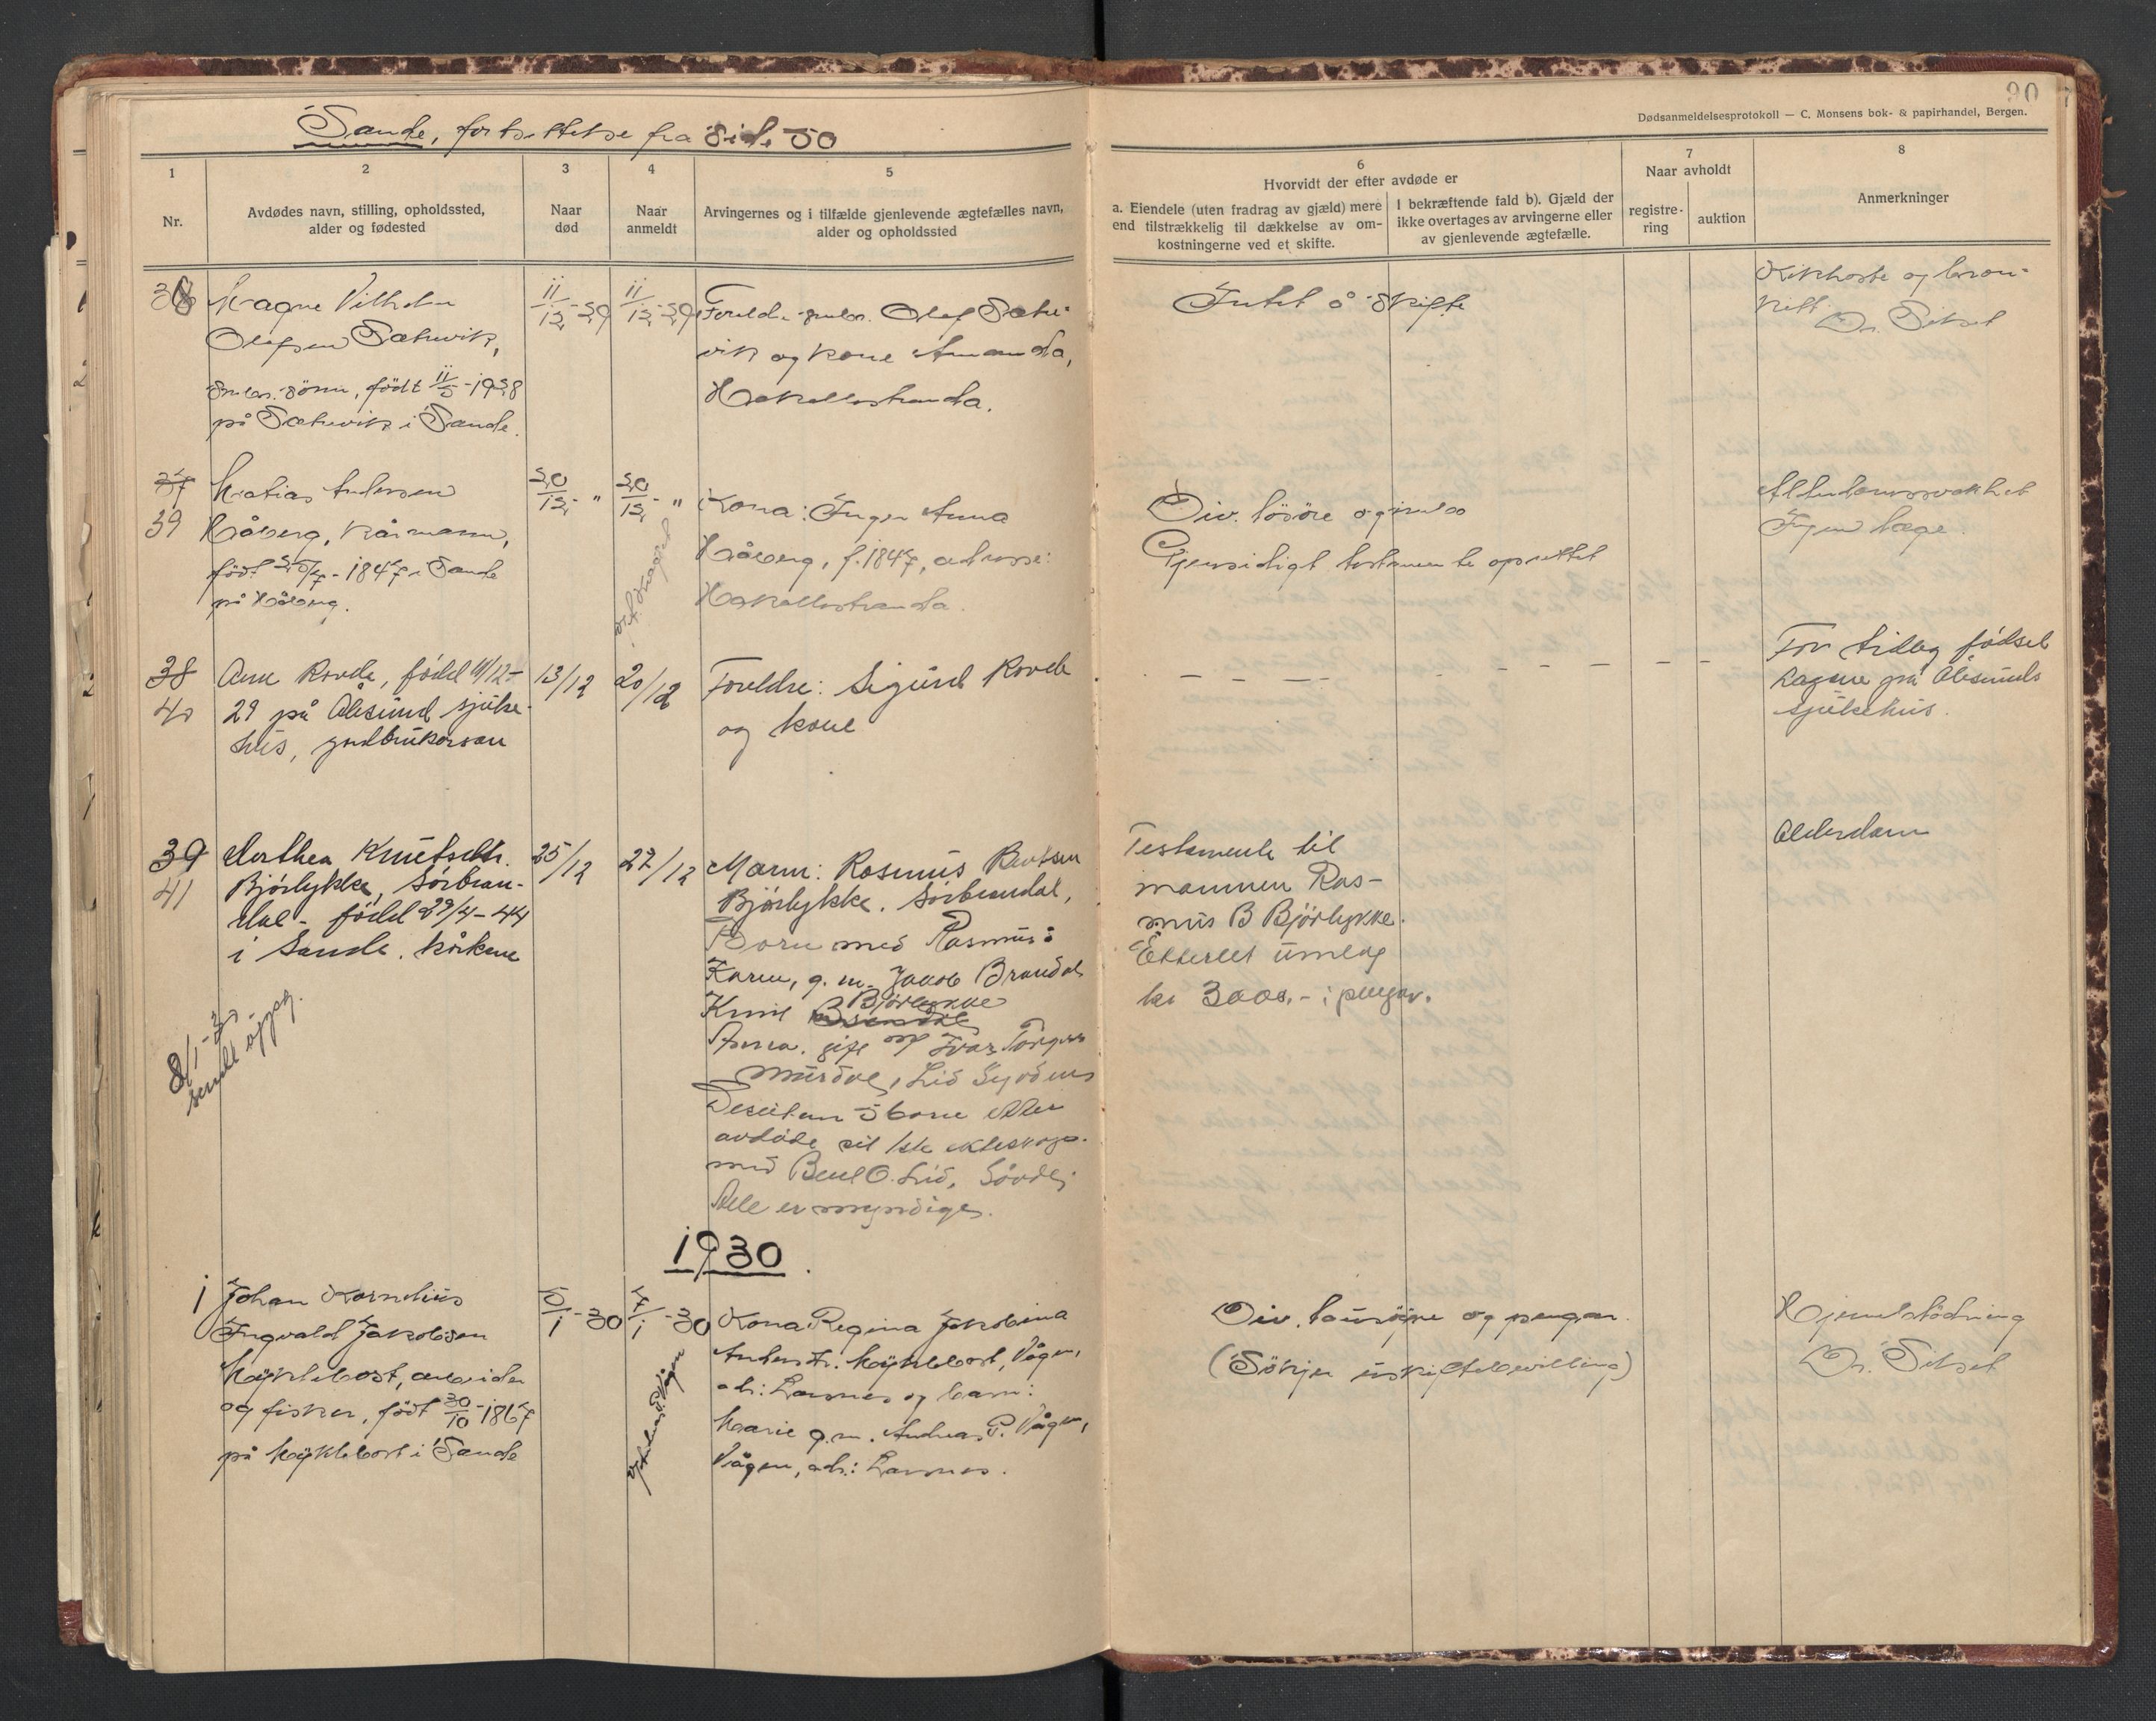 90
Dødsanmeldelsesprotokoll — C. Monsens bok- & papirhandel, Bergen.
Sande, fortsettelse fra side 50
1
Nr.
2
Avdødes navn, stilling, opholdssted,
alder og fødested
3
Naar
død
4
Naar
anmeldt
5
Arvingernes og i tilfælde gjenlevende ægtefælles navn,
alder og opholdssted
6
Hvorvidt der efter avdøde er
a. Eiendele (uten fradrag av gjæld) mere
end tilstrækkelig til dækkelse av om-
kostningerne ved et skifte.
I bekræftende fald b). Gjæld der
ikke overtages av arvingerne eller
av gjenlevende ægtefælle.
7
Naar avholdt
registre-
ring
auktion
8
Anmerkninger
38
Magne Vilhelm
Olafsen Sætrevik,
smbr. sønn, født 11/5-1928
på Sætrevik i Sande.
11/12-29
11/12-29
Foreldr. smbr. Olaf Sætre-
vik og kone Amanda,
Hakallestranda.
Intet å skifte
Kikhoste og bron-
kitt.
Dr. Sitset
37
39
Matias Andersen
Håberg, kårmann,
født 25/7-1847 i Sande
på Håberg.
20/12 "
20/12 "
Kona: Inger Anna
Håberg, f. 1847, adresse:
Hakallestranda.
Div. løsøre og innbo
Gjensidigt testamente oprettet
Alderdomssvakhet
Ingen læge.
38
40
Ann Rovde, född 11/12-
29 på Ålesund sjuke-
hus, gardbrukarson
13/12
20/12
Foreldre: Sigurd Rovde
og kone
— — — —
— — — — —
For tidleg fødsel
Lægene på Ålesunds
sjukehus.
39
41
Dorthea Knutsdtr.
Bjørlykke, Sørbran-
dal - född 29/4-44
i Sande. kårkone
25/12
27/12
Mann: Rasmus Bentsen
Bjørlykke. Sørbrandal,
Born med Rasmus:
Karen, g. m. Jakob Brandal
Knut Bjørlykke
Brandal
Anna. gift m/ Ivar Torgers
Murdal, Lid Syvdens
Desutan 5 born etter
avdøde sit 1ste ekteskap.
med Bent O. Lid, Søvde,
Alle er myndige.
Testamente til
mannen Ras-
mus B Bjørlykke.
Etterlet umlag
kr 3000,- i pengar.
Alderdom
8/1-30
sendt oppg.
1930.
1
Johan Kornelius
Ingvald Jakobsen
Myklebost, arbeider
og fisker, født 30/10-1867
på Myklebost i Sande
5/1-30
7/1-30
Kona Regina Jakobina
Andersdtr. Myklebost, Vågen,
adr: Larsnes og barn:
Marie g.m. Andreas P. Vågen,
Vågen, adr.: Larsnes.
Div. lausøyre og pengar.
(Søkjer uskiftebevilling)
Hjerneblødning
Dr. Sitset